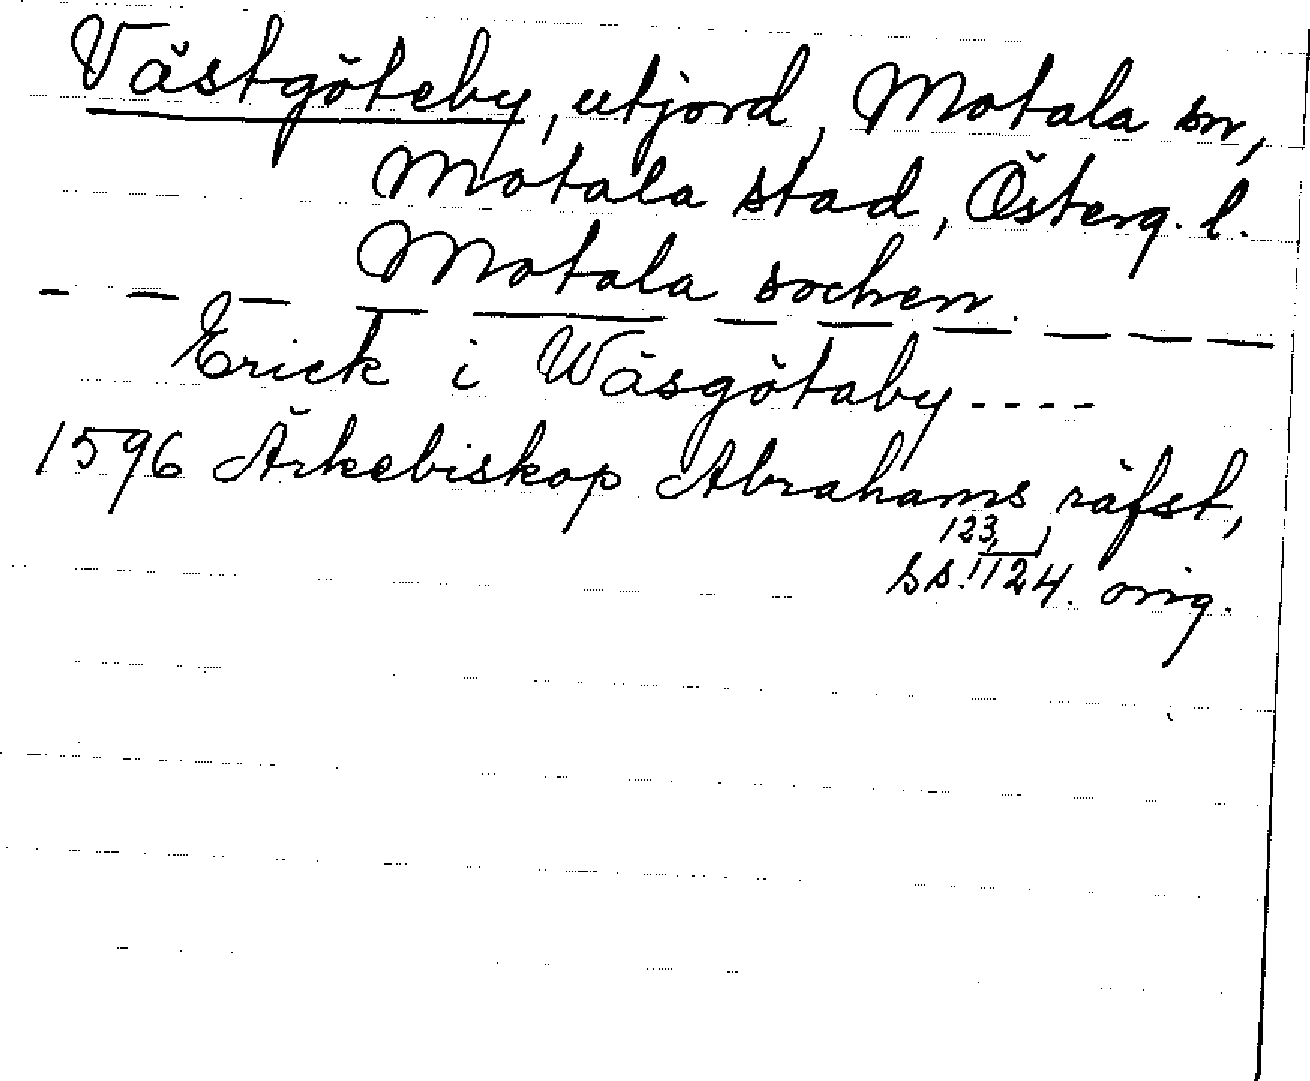 Västgöteby, utjord, Motala sn,
Motala stad, Österg. l.
Motala sochen.
Erick i Wäsgötaby----
1596 Ärkebiskop Abrahams räfst,
123,
ss. 124. orig.